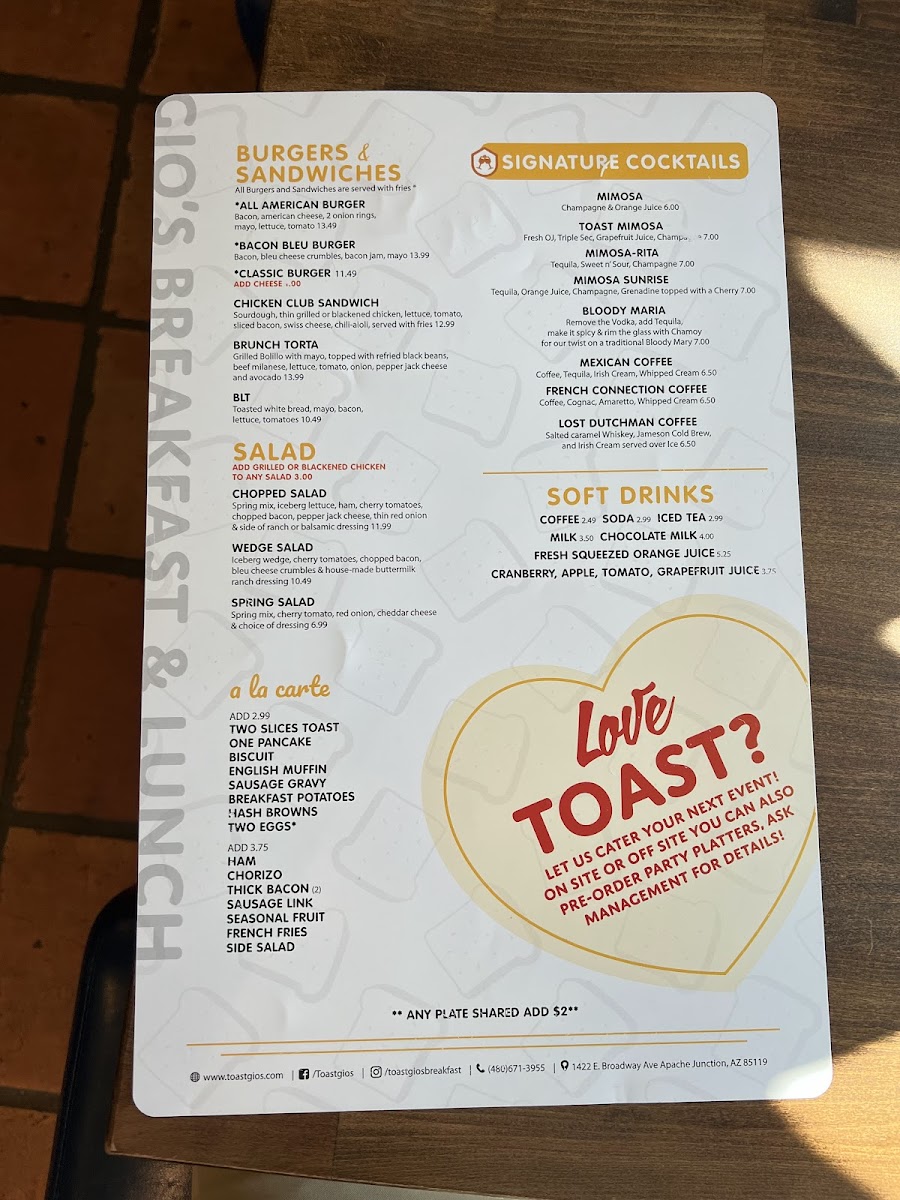 GIO'S BREAKFAST & LUNCH
BURGERS &
SANDWICHES
All Burgers and Sandwiches are served with fries *
*ALL AMERICAN BURGER
Bacon, american cheese, 2 onion rings,
mayo, lettuce, tomato 13.49
*BACON BLEU BURGER
Bacon, bleu cheese crumbles, bacon jam, mayo 13.99
*CLASSIC BURGER 11.49
ADD CHEESE
CHICKEN CLUB SANDWICH
Sourdough, thin grilled or blackened chicken, lettuce, tomato,
sliced bacon, swiss cheese, chili-aioli, served with fries 12.99
BRUNCH TORTA
Grilled Bolillo with mayo, topped with refried black beans,
beef milanese, lettuce, tomato, onion, pepper jack cheese
and avocado 13.99
BLT
Toasted white bread, mayo, bacon,
lettuce, tomatoes 10.49
SALAD
ADD GRILLED OR BLACKENED CHICKEN
TO ANY SALAD 3.00
CHOPPED SALAD
Spring mix, iceberg lettuce, ham, cherry tomatoes,
chopped bacon, pepper jack cheese, thin red onion
& side of ranch or balsamic dressing 11.99
WEDGE SALAD
Iceberg wedge, cherry tomatoes, chopped bacon,
bleu cheese crumbles & house-made buttermilk
ranch dressing 10.49
SPRING SALAD
Spring mix, cherry tomato, red onion, cheddar cheese
& choice of dressing 6.99
a la carte
ADD 2.99
TWO SLICES TOAST
ONE PANCAKE
BISCUIT
ENGLISH MUFFIN
SAUSAGE GRAVY
BREAKFAST POTATOES
HASH BROWNS
TWO EGGS*
ADD 3.75
HAM
CHORIZO
THICK BACON (2)
SAUSAGE LINK
SEASONAL FRUIT
FRENCH FRIES
SIDE SALAD
SIGNATURE COCKTAILS
MIMOSA
Champagne & Orange Juice 6.00
TOAST MIMOSA
Fresh OJ, Triple Sec, Grapefruit Juice, 7.00
MIMOSA-RITA
Tequila, Sweet n' Sour, Champagne 7.00
MIMOSA SUNRISE
Tequila, Orange Juice, Champagne, Grenadine topped with a Cherry 7.00
BLOODY MARIA
Remove the Vodka, add Tequila,
make it spicy & rim the glass with Chamoy
for our twist on a traditional Bloody Mary 7.00
MEXICAN COFFEE
Coffee, Tequila, Irish Cream, Whipped Cream 6.50
FRENCH CONNECTION COFFEE
Coffee, Cognac, Amaretto, Whipped Cream 6.50
LOST DUTCHMAN COFFEE
Salted caramel Whiskey, Jameson Cold Brew,
and Irish Cream served over Ice 6.50
SOFT DRINKS
COFFEE 2.49 SODA 2.99 ICED TEA 2.99
MILK 3.50 CHOCOLATE MILK 4.00
FRESH SQUEEZED ORANGE JUICE 5.25
CRANBERRY, APPLE, TOMATO, GRAPEFRUIT JUICE 3.75
Love
TOAST?
LET US CATER YOUR NEXT EVENT!
ON SITE OR OFF SITE YOU CAN ALSO
PRE-ORDER PARTY PLATTERS, ASK
MANAGEMENT FOR DETAILS!
** ANY PLATE SHARED ADD $2**
www.toastgios.com | /Toastgios | /toastgiosbreakfast | (480)671-3955 | 1422 E. Broadway Ave Apache Junction, AZ 85119